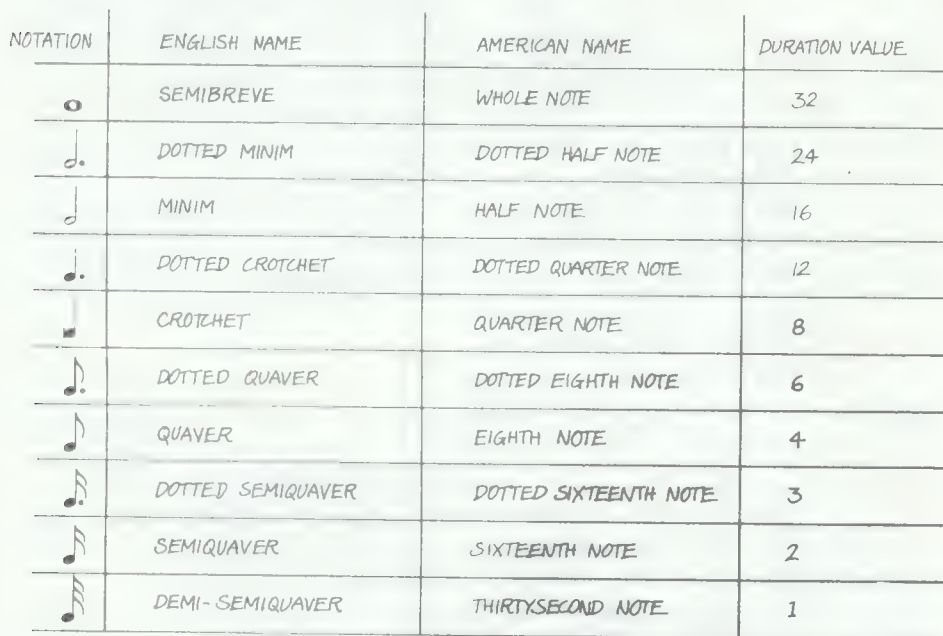 NOTATION ENGLISH NAME AMERICAN NAME DURATION VALUE
SEMIBREVE WHOLE NOTE 32
DOTTED MINIM DOTTED HALF NOTE 24
MINIM HALF NOTE 16
DOTTED CROTCHET DOTTED QUARTER NOTE 12
CROTCHET QUARTER NOTE 8
DOTTED QUAVER DOTTED EIGHTH NOTE 6
QUAVER EIGHTH NOTE 4
DOTTED SEMIQUAVER DOTTED SIXTEENTH NOTE 3
SEMIQUAVER SIXTEENTH NOTE 2
DEMI-SEMIQUAVER THIRTYSECOND NOTE 1